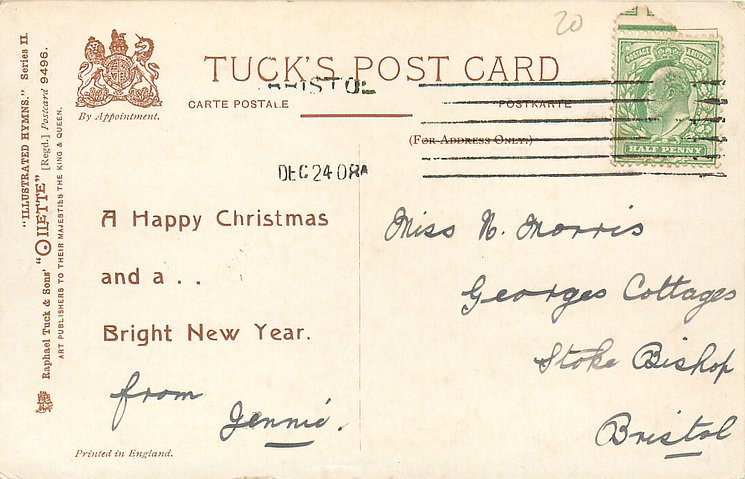 20
TUCK'S POST CARD
CARTE POSTALE
POSTKARTE
(FOR ADDRESS ONLY.)
By Appointment.
"ILLUSTRATED HYMNS." Series II.
Raphael Tuck & Sons' "OILETTE" [Regd.] Postcard 9496.
ART PUBLISHERS TO THEIR MAJESTIES THE KING & QUEEN.
BRISTOL
DEC 24 08
POSTAGE & REVENUE
HALF PENNY
A Happy Christmas
and a . .
Bright New Year.
from
Jennie.
Miss N. Morris
Georges Cottages
Stoke Bishop
Bristol
Printed in England.